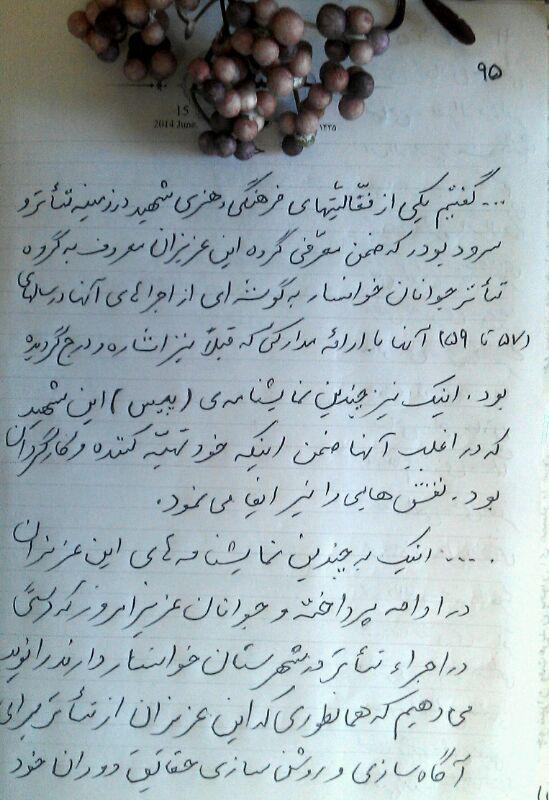 ۹۵
15
2014 June.
۱۴۳۵
... گفتیم یکی از فعّالیّتهای فرهنگی و هنری شهید در زمینه تئاتر و
سرود بود که ضمن معرّفی گروه این عزیزان معروف به گروه
تئاتر جوانان خوانسار به گوشه ای از اجراهای آنها در سالهای
(۵۷ تا ۵۹) آنها با ارائه مدارکی که قبلاً نیز اشاره و درج گردیده
بود. اینک نیز چندین نمایشنامه ی (پیس) این شهید
که در اغلب آنها ضمن اینکه خود تهیّه کننده و کارگردان
بود. نقش هایی را نیز ایفا می نمود.
..... اینک به چندین نمایشنامه های این عزیزان
در ادامه پرداخته و جوانان عزیز امروز که دستی
در اجراء تئاتر در شهرستان خوانسار دارند را نوید
می دهیم که همانطوری که این عزیزان از تئاتر برای
آگاه سازی و روشن سازی حقایق دوران خود